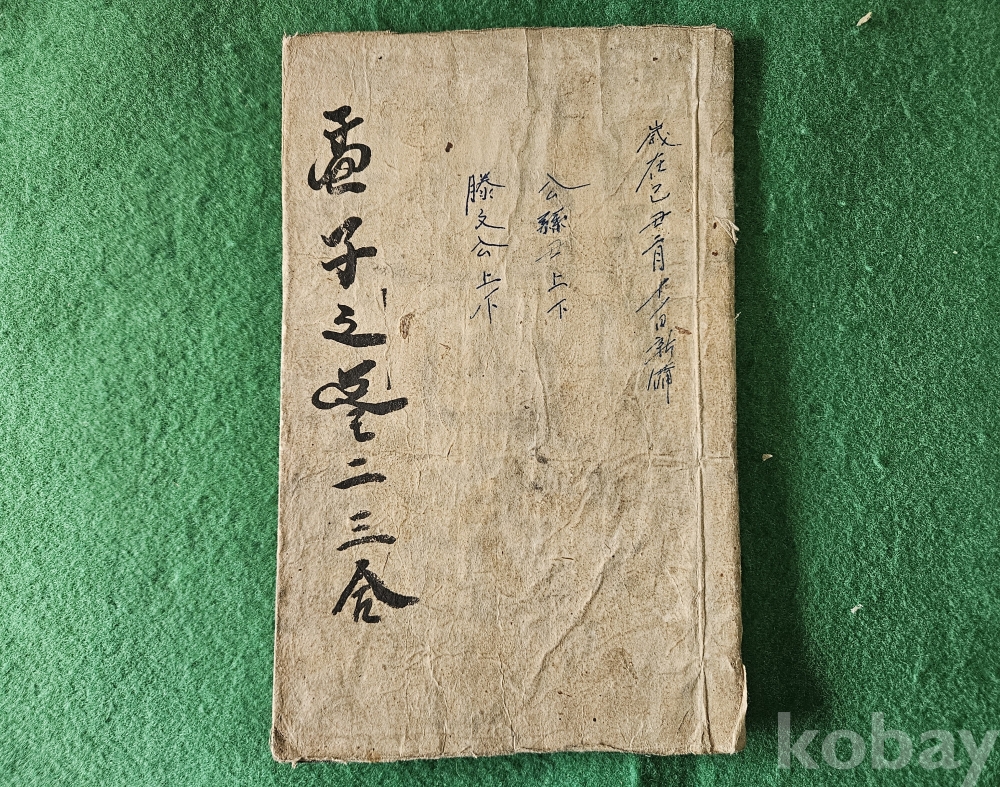 歲在己丑 日新備
公孫丑上下
滕文公上下
孟子之卷二三合
kobay